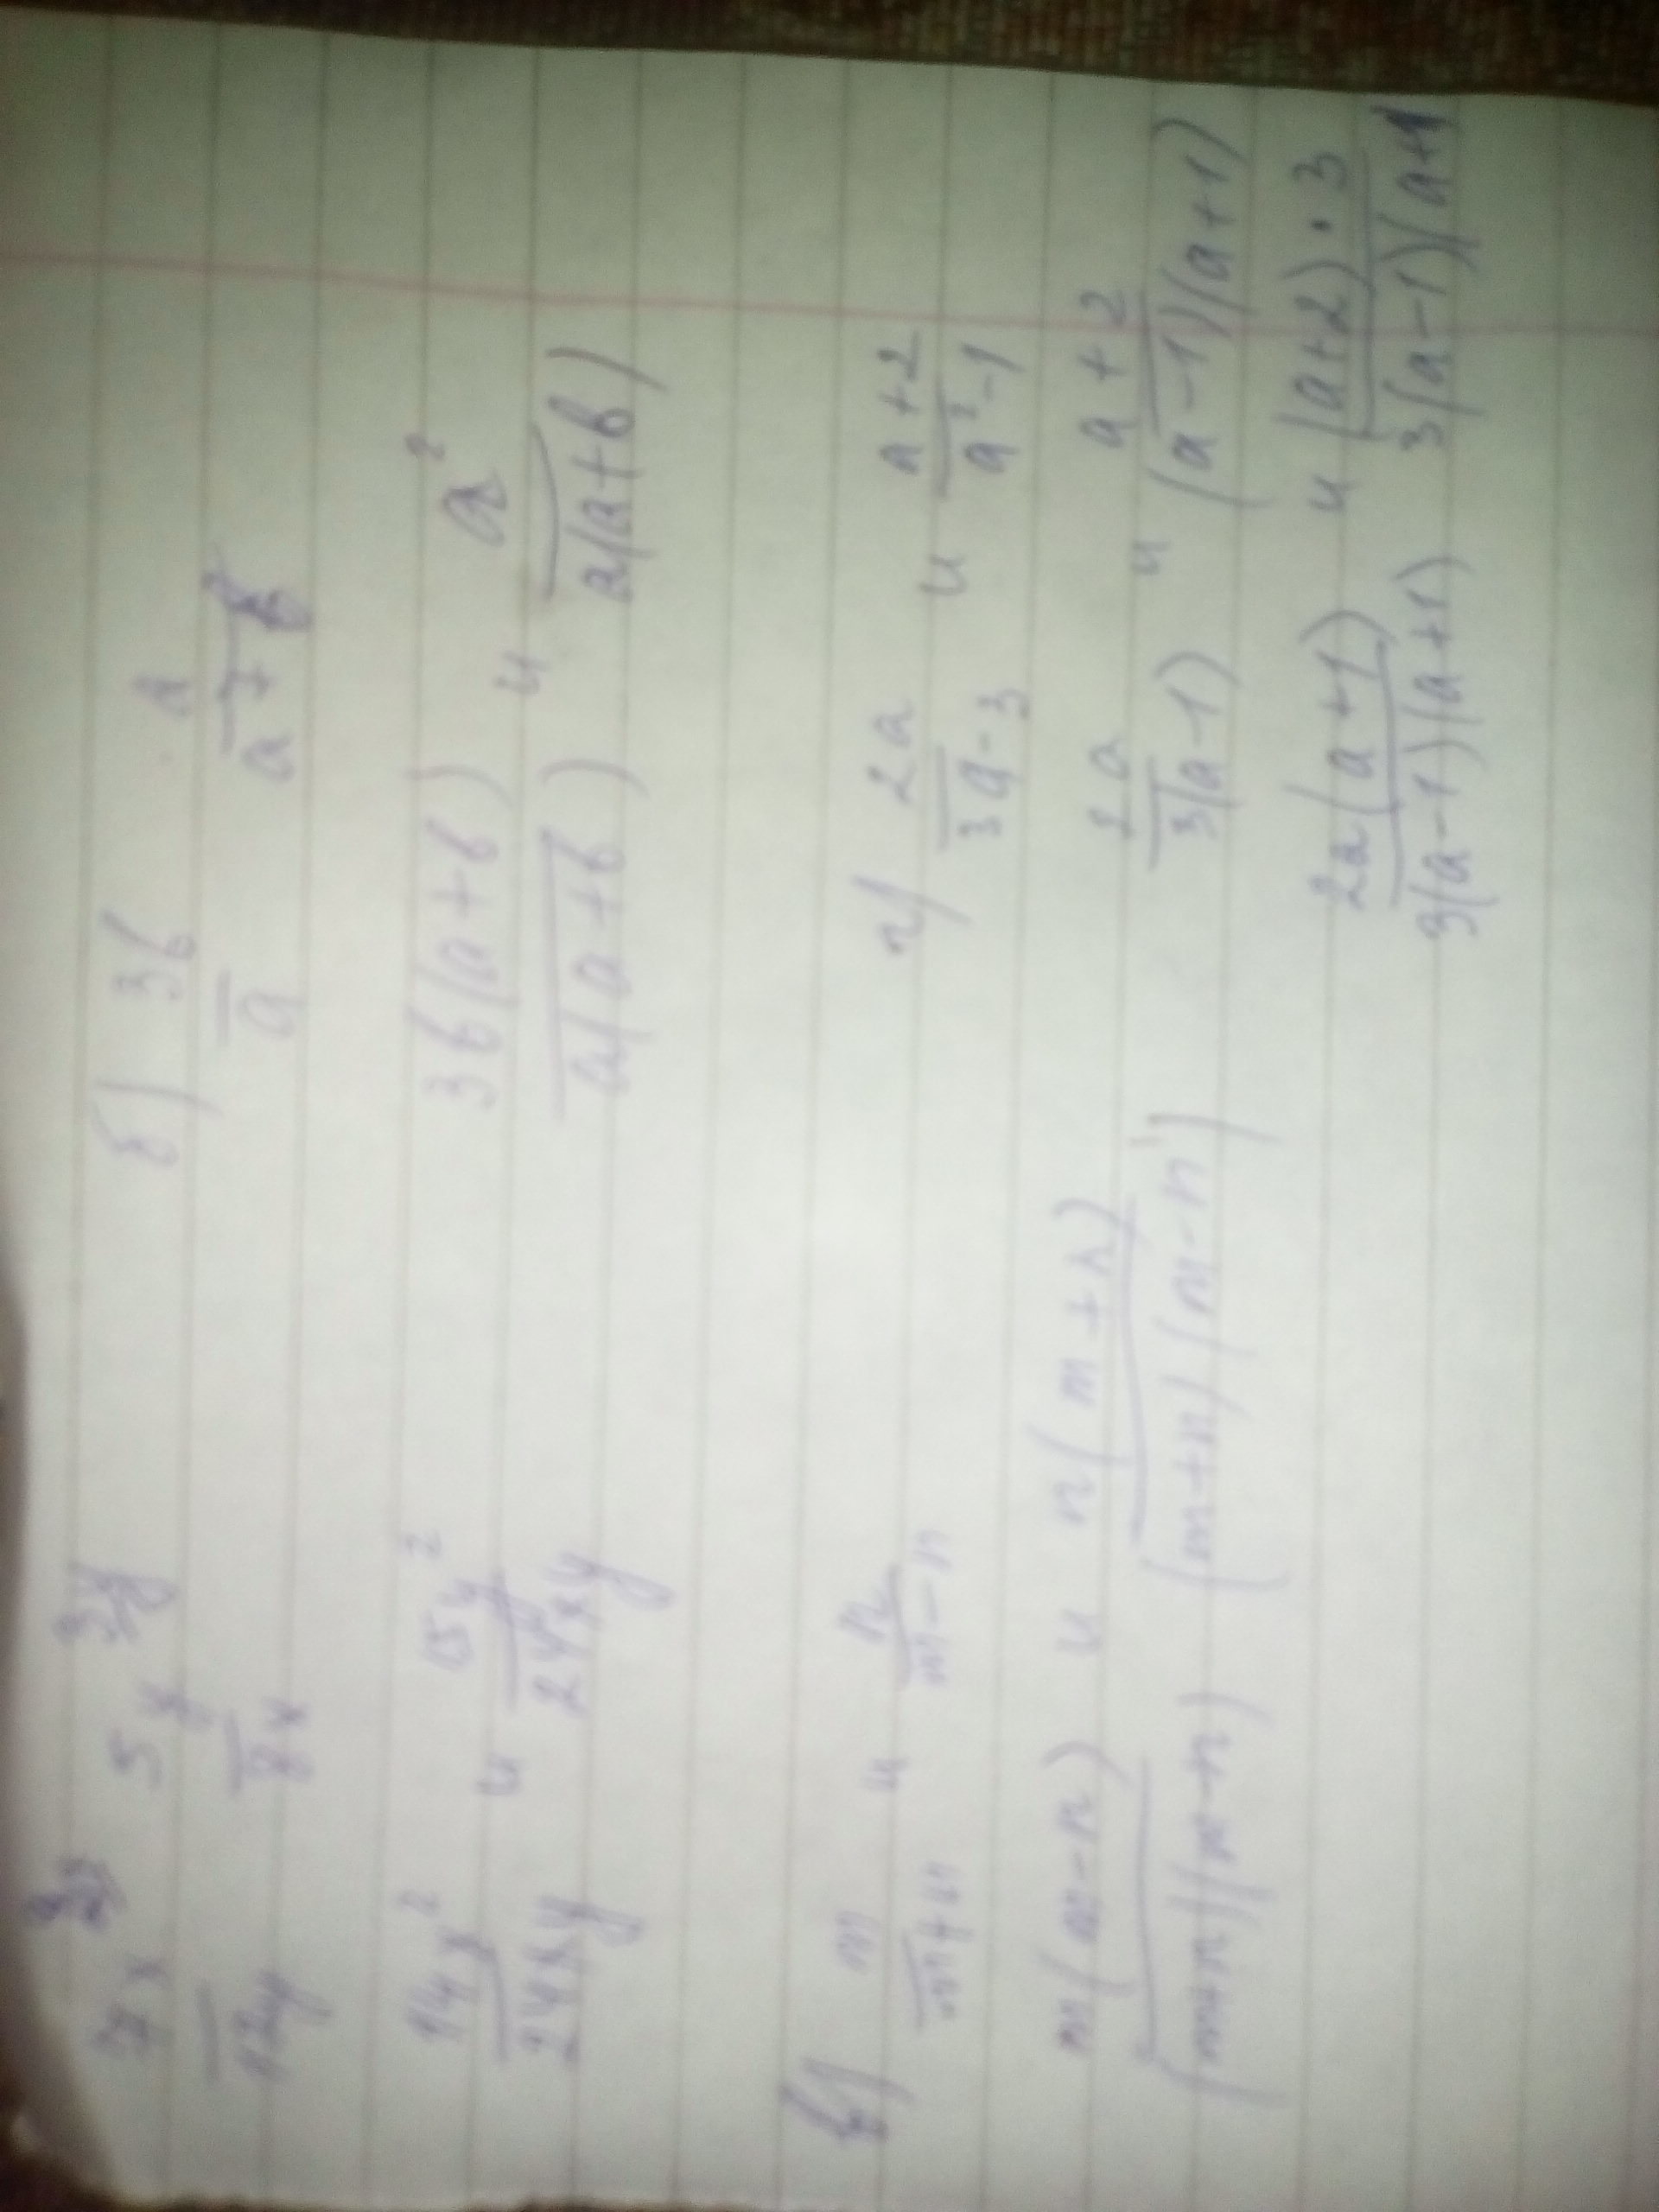 7x/12y 5y/8x 3y б) 3b/a a/a+b
14x²/24xy и 15y²/24xy 3b(a+b)/a(a+b) и a²/a(a+b)
в) m/m+n и n/m-n г) 2a/3a-3 и a+2/a²-1
m(m-n)/(m+n)(m-n) и n(m+n)/(m+n)(m-n) 2a/3(a-1) и a+2/(a-1)(a+1)
2a(a+1)/3(a-1)(a+1) и (a+2)·3/3(a-1)(a+1